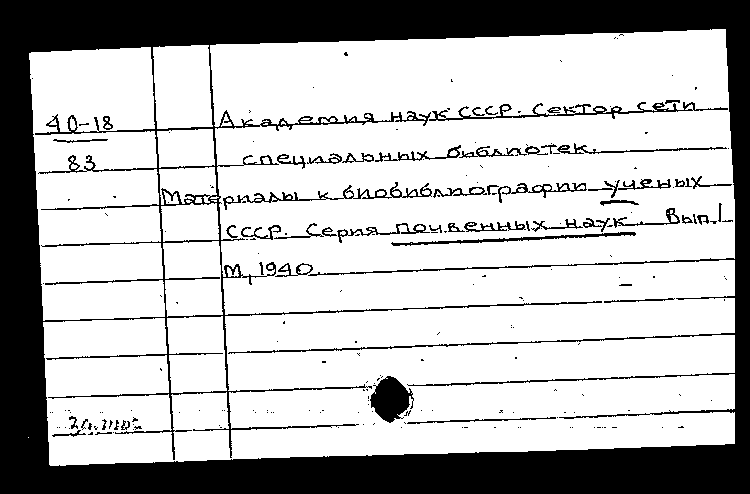 40-18
83
Академия наук СССР. Сектор сети
специальных библиотек.
Материалы к биобиблиографии ученых
СССР. Серия почвенных наук. Вып. 1
М., 1940.